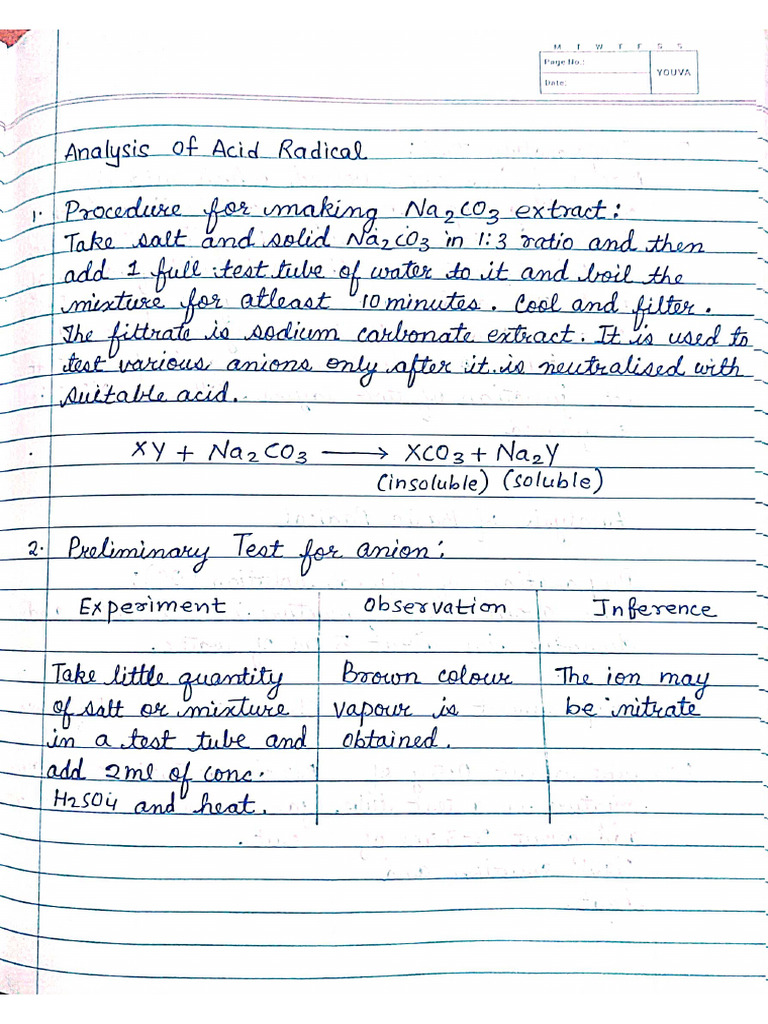 M T W T F S S
Page No.:
Date:
YOUVA
Analysis of Acid Radical
1. Procedure for making Na2CO3 extract:
Take salt and solid Na2CO3 in 1:3 ratio and then
add 1 full test tube of water to it and boil the
mixture for atleast 10 minutes. Cool and filter.
The filtrate is sodium carbonate extract. It is used to
test various anions only after it is neutralised with
suitable acid.
XY + Na2CO3 ⟶ XCO3 + Na2Y
(insoluble) (soluble)
2. Preliminary Test for anion:
Experiment Observation Inference
Take little quantity Brown colour The ion may
of salt or mixture vapour is be nitrate
in a test tube and obtained.
add 2ml of conc.
H2SO4 and heat.